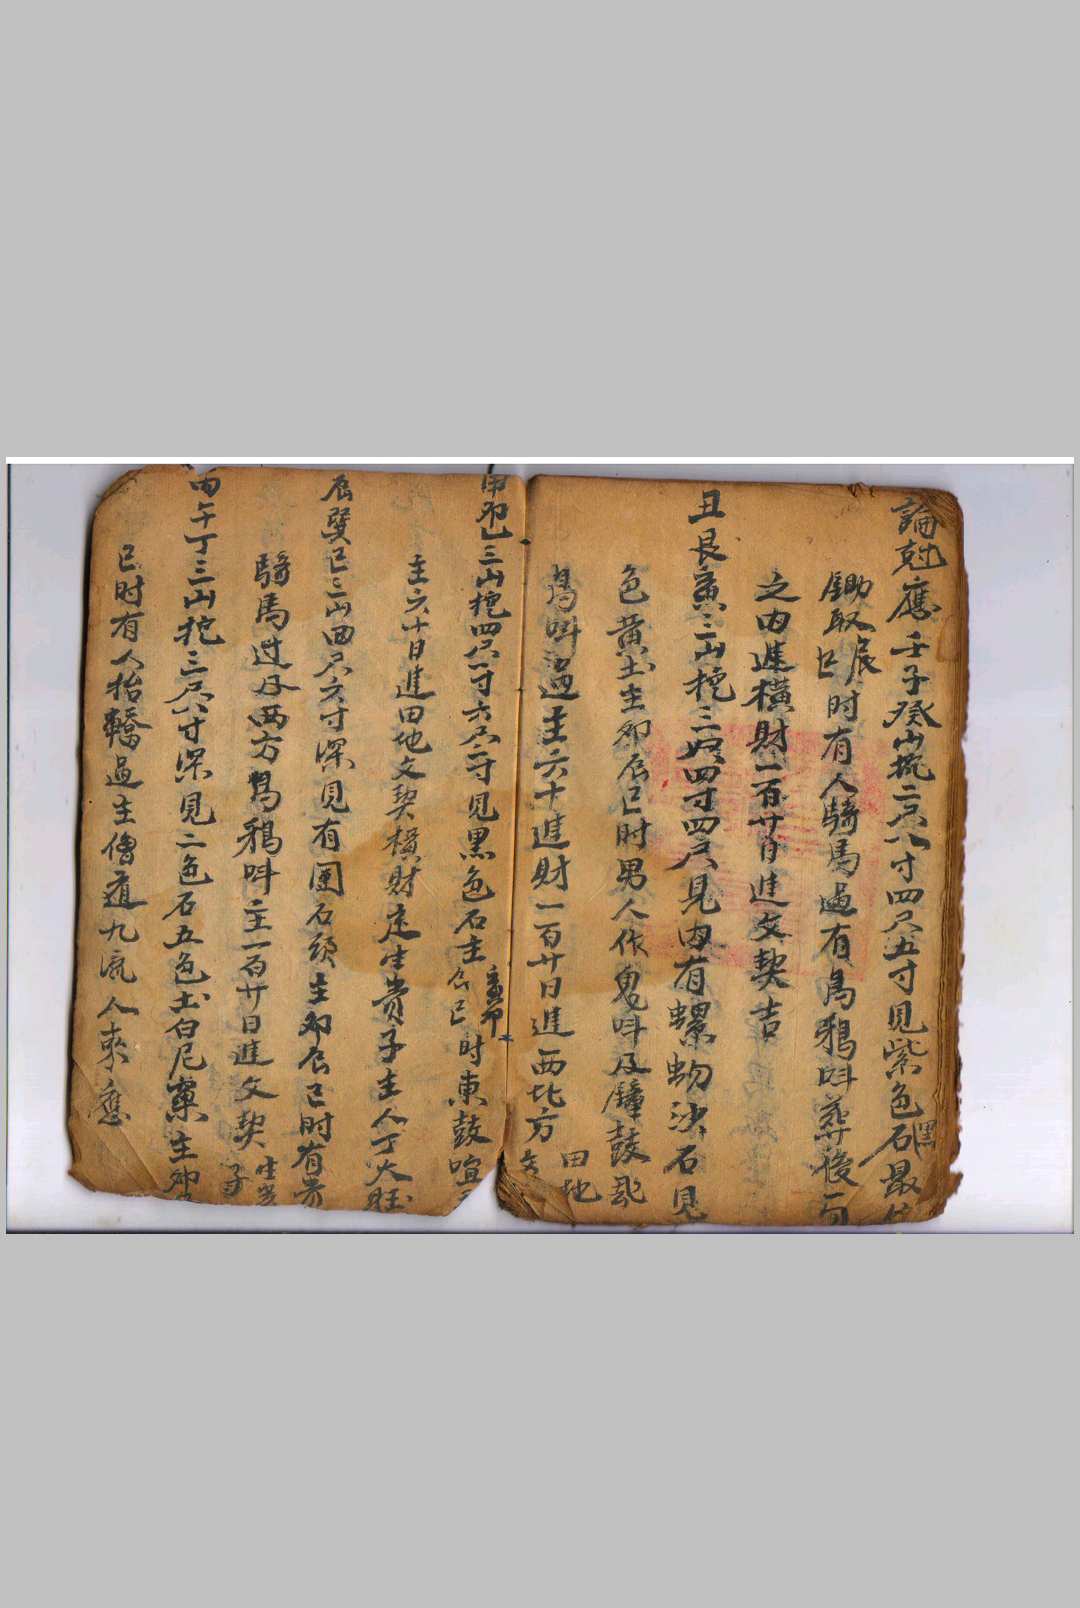 論尅應壬子癸山挖二尺八寸四尺五寸見紫色石黑最
鋤取辰巳时有人騎馬過有烏鴉呌葬後一旬
之内進橫財一百廿日進文契吉
丑艮寅三山挖三尺四寸四尺見内有螺蚴沙石見
色黄土主卯辰巳时男人作鬼呌及鐘鼓
烏呌過主六十進財一百廿日進西北方田地文
甲卯乙三山挖四尺一寸六尺二寸見黑色石主寅卯辰巳时東鼓喧
主六十日進田地文契橫財定生貴子主人丁大旺
辰巽巳三山四尺六寸深見有團石頭主卯辰巳时有
騎馬過及西方烏鴉呌主一百廿日進文契生貴子
丙午丁三山挖三尺六寸深見二色石五色土白尼
巳时有人抬轎過主僧道九流人來應